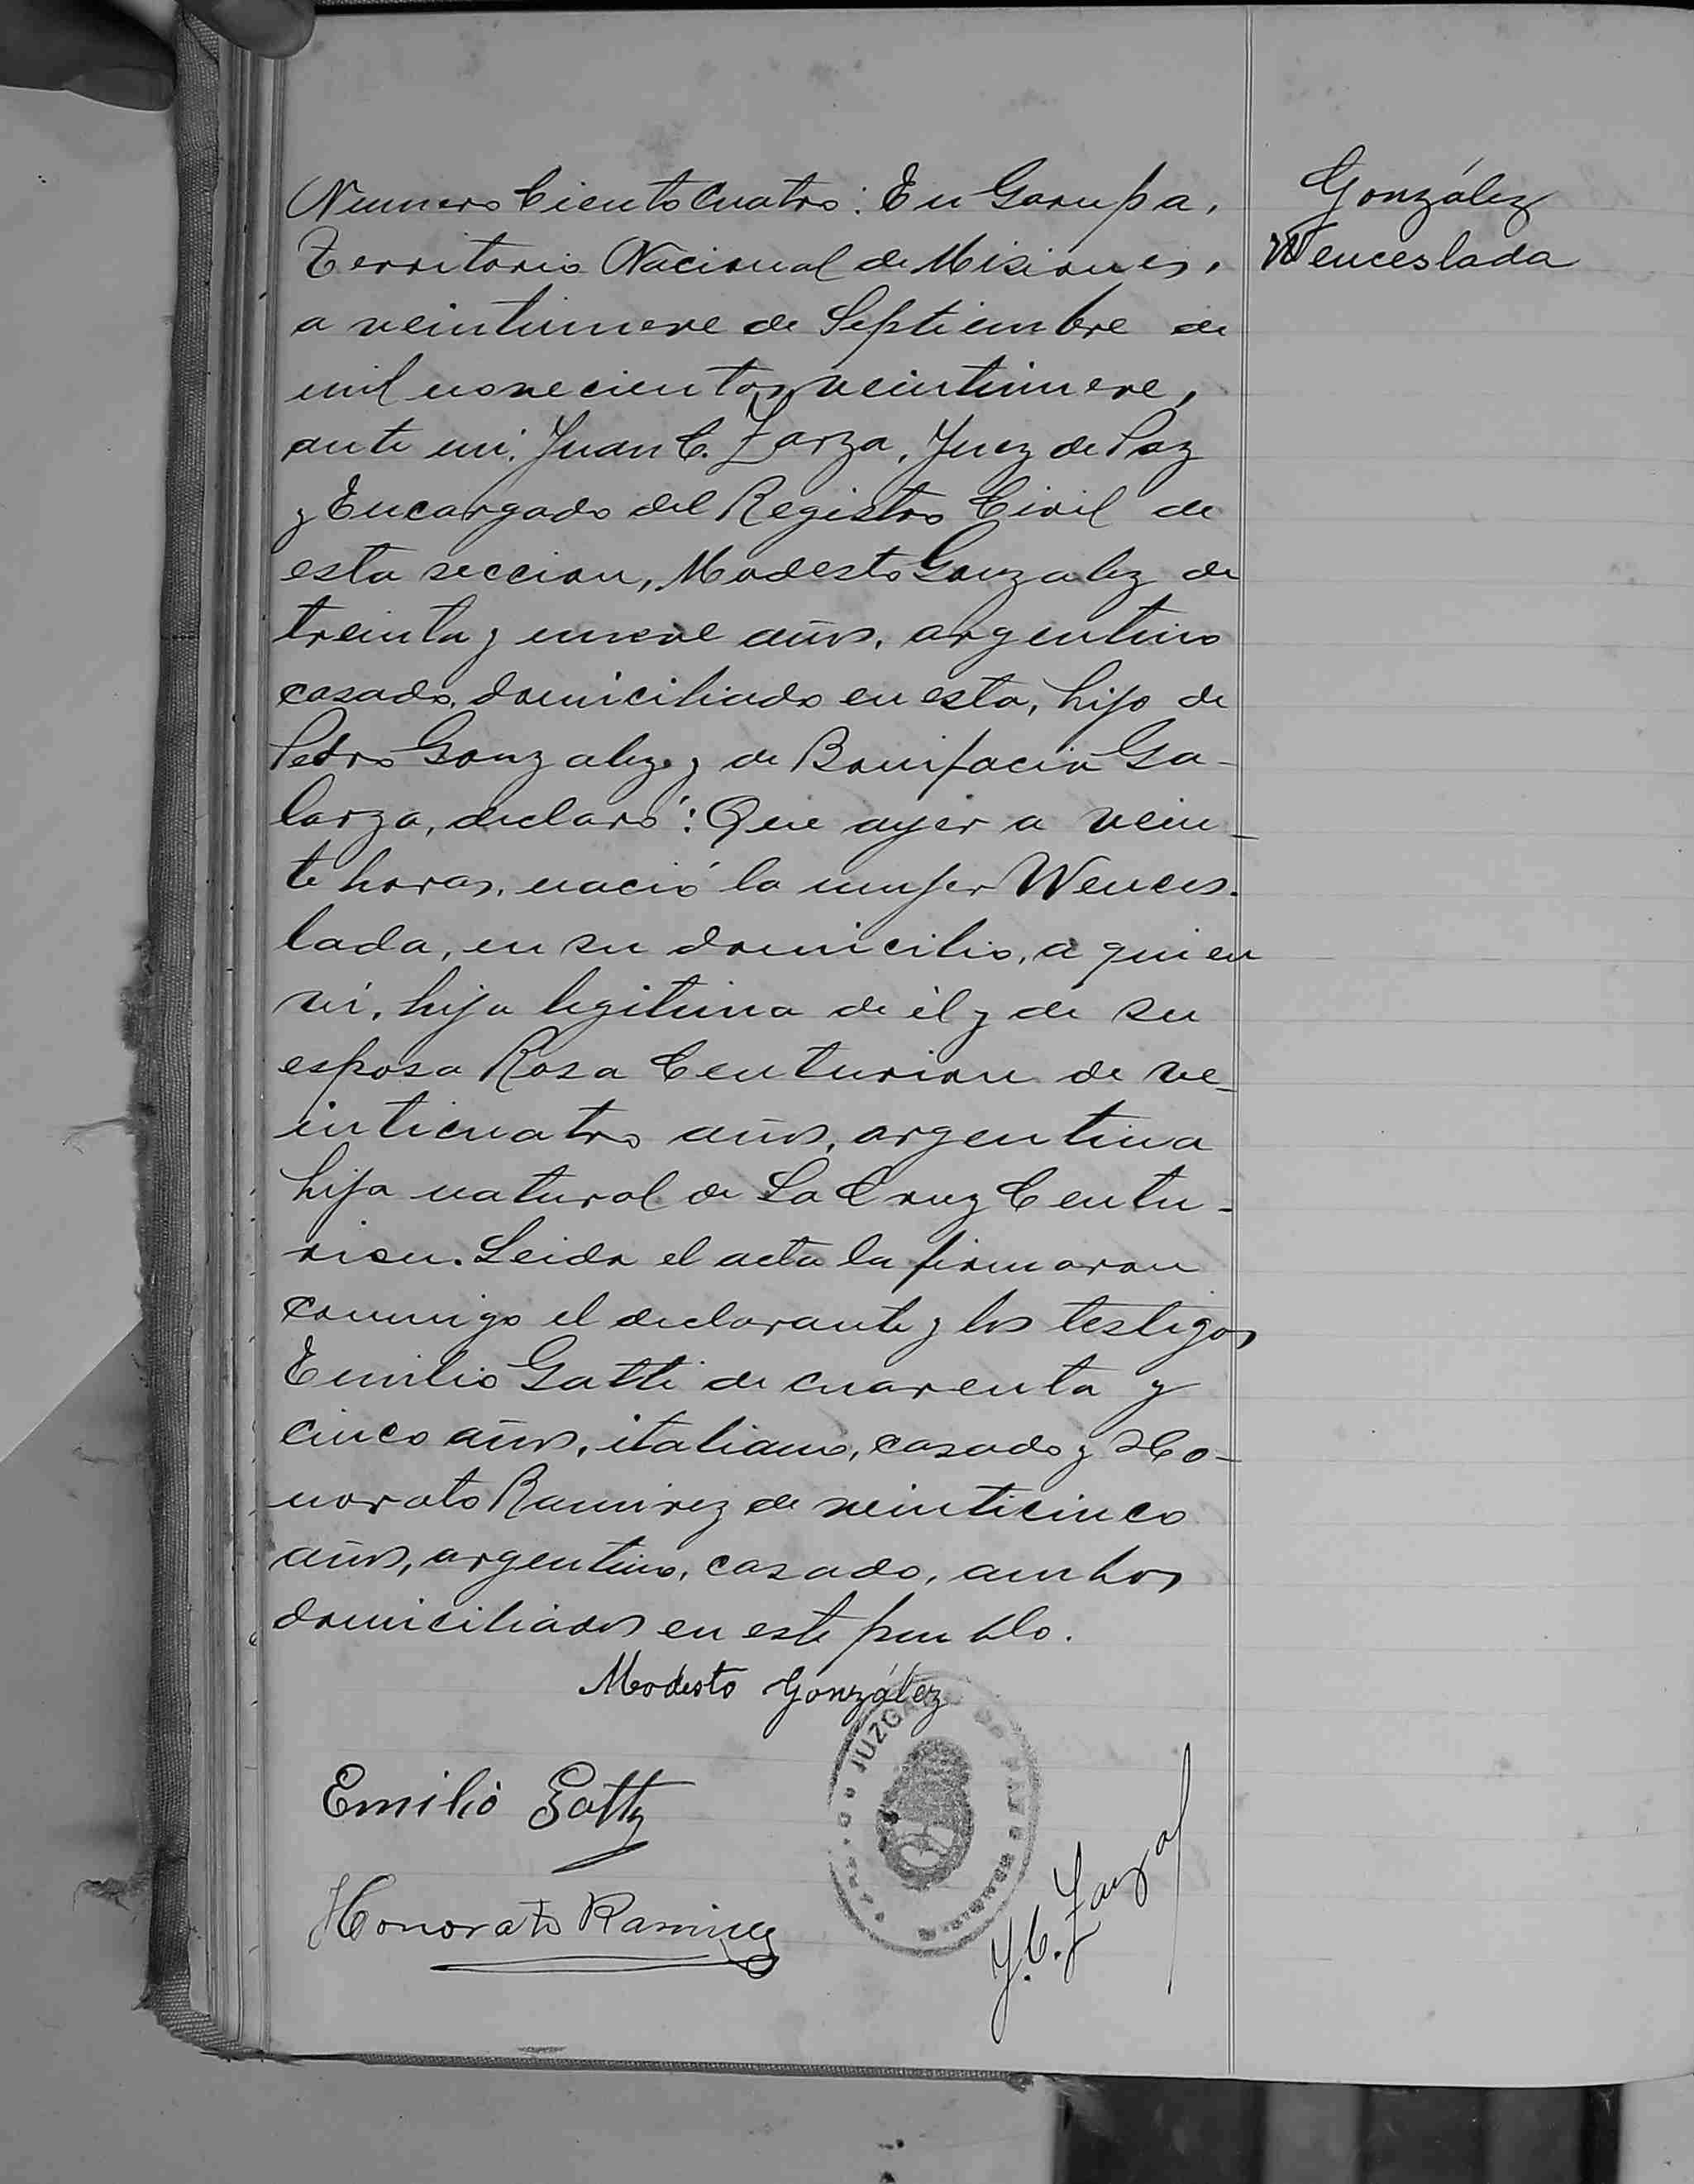 Numero Ciento Cuatro: En Garupa,
Territorio Nacional de Misiones,
a veintinueve de Septiembre de
mil novecientos veintinueve,
ante mi, Juan C. Zarza, Juez de Paz
y Encargado del Registro Civil de
esta seccion, Modesto Gonzalez de
treinta y nueve años, argentino
casado, domiciliado en esta, hijo de
Pedro Gonzalez y de Bonifacia Ga-
larza, declaró: Que ayer a vein-
te horas, nació la mujer Wences-
lada, en su domicilio, a quien
ví, hija legitima de él y de su
esposa Rosa Centurion de ve-
inticuatro años, argentina
hija natural de La Cruz Centu-
rion. Leida el acta la firmaron
conmigo el declarante y los testigos
Emilio Gatti de cuarenta y
cinco años, italiano, casado y Ho-
norato Ramirez de veinticinco
años, argentino, casado, ambos
domiciliados en este pueblo.
Modesto González
Emilio Gatty
Honorato Ramirez
J. C. Zarza
JUZGADO
González
Wenceslada